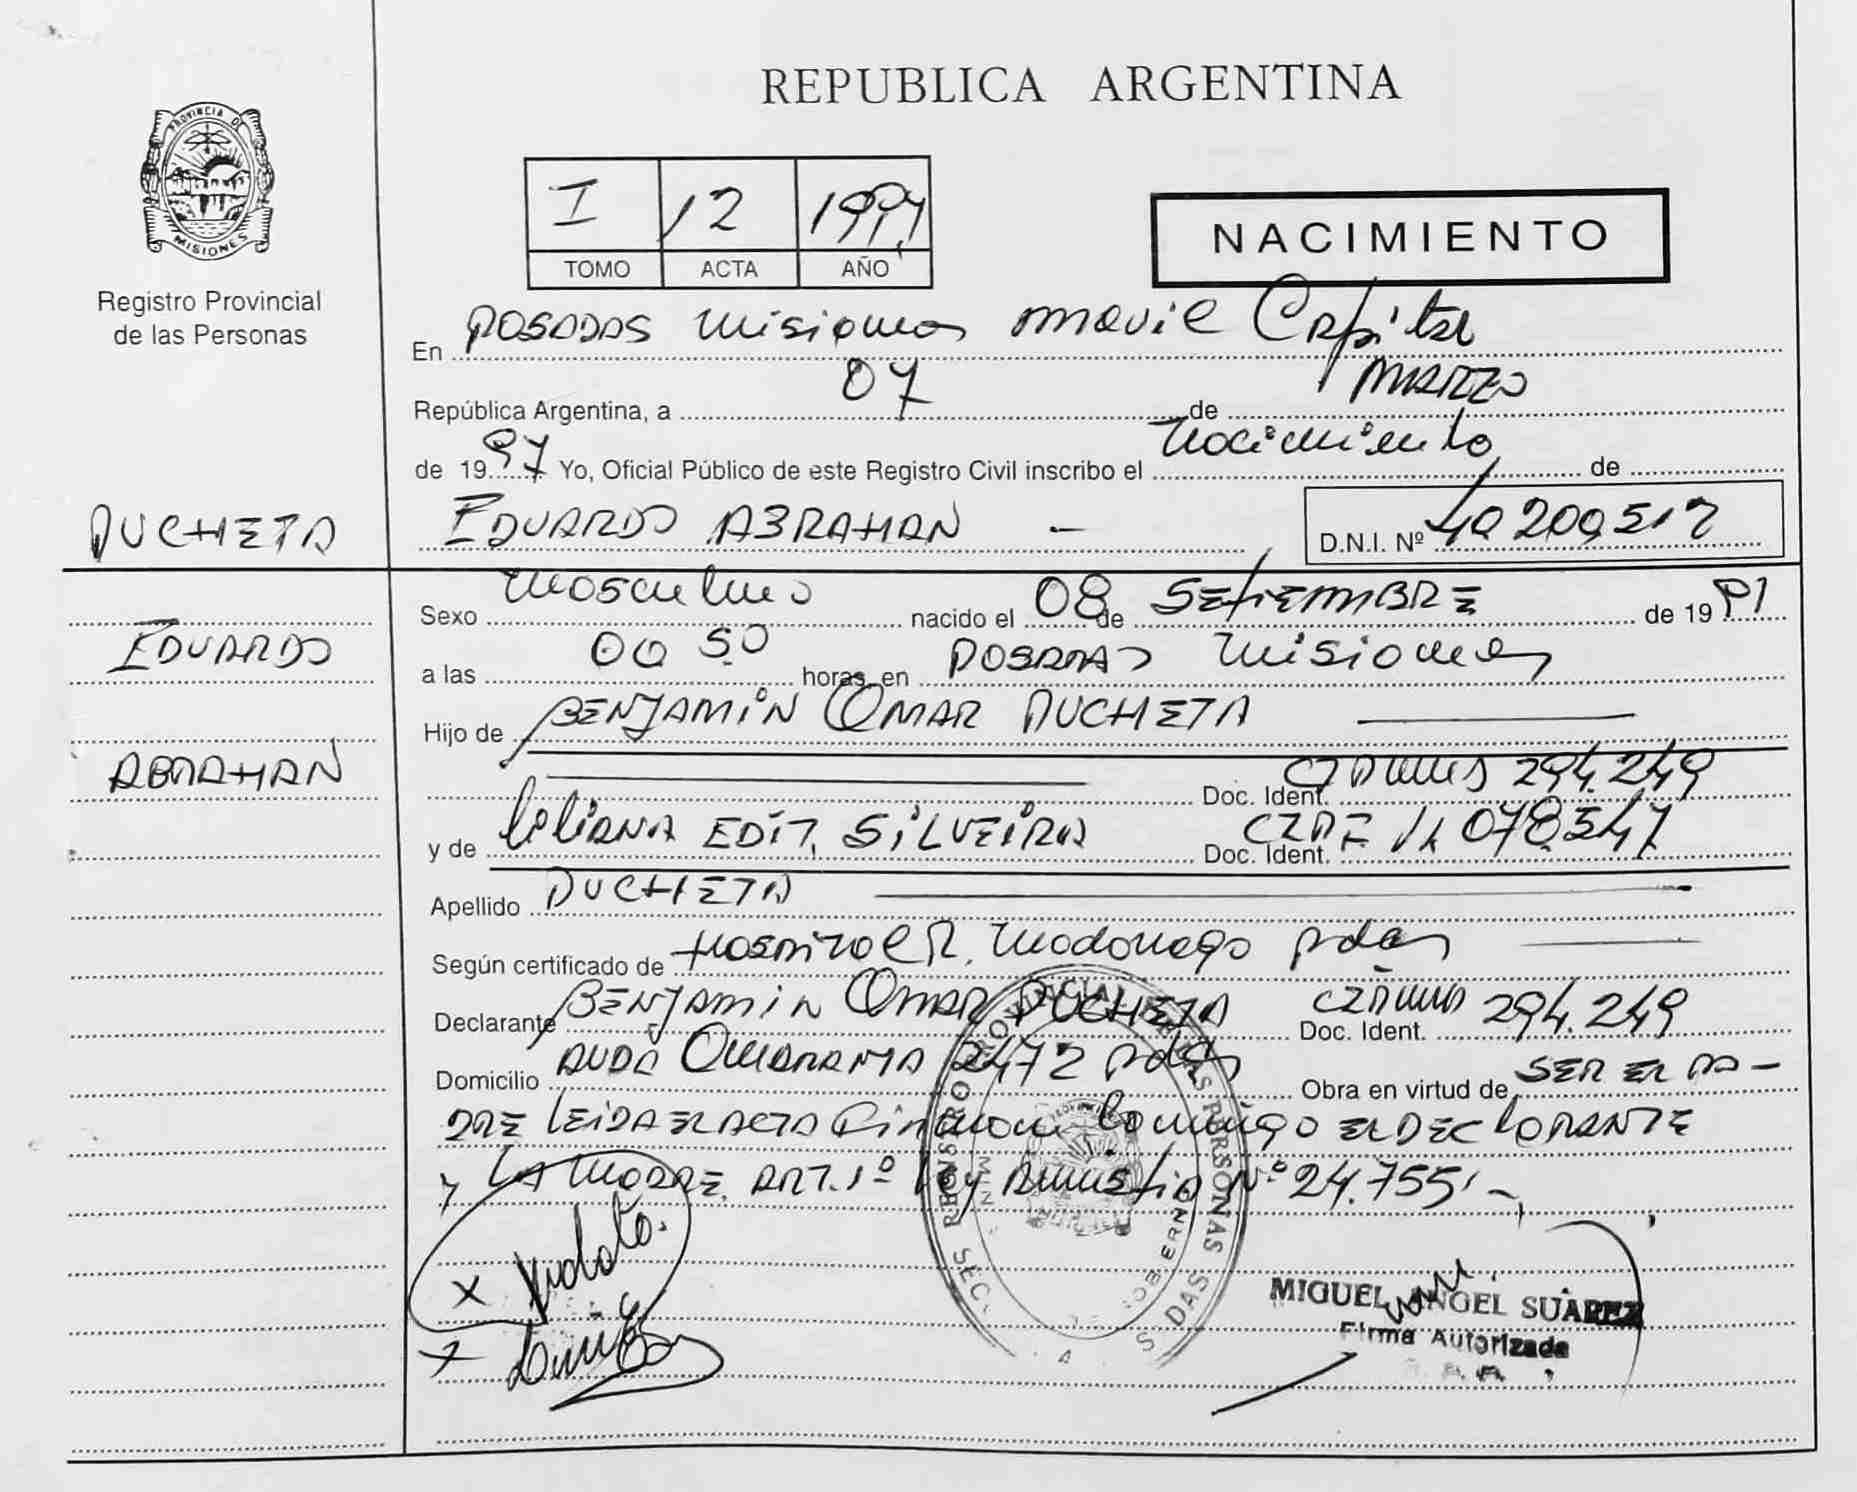 REPUBLICA ARGENTINA
PROVINCIA DE
MISIONES
Registro Provincial
de las Personas
I 12 1997
TOMO ACTA AÑO
NACIMIENTO
En POSADAS Misiones movil Capital
República Argentina, a 07 de MARZO
de 1997 Yo, Oficial Público de este Registro Civil inscribo el Nacimiento de
DUCHETA
EDUARDO ABRAHAN —
D.N.I. Nº 40 200512
Sexo Masculino nacido el 08 de SEtiEMBRE de 1991
EDUARDO
a las 00 50 horas en POSADAS Misiones
Hijo de BENJAMIN OMAR DUCHETA
ABRAHAN
Doc. Ident. 294.249
y de Liliana EDIT. SILVEIRA Doc. Ident. 14 078.547
Apellido DUCHETA
Según certificado de Hospital R. Madariaga Pdas
Declarante BENJAMIN OMAR DUCHETA Doc. Ident. 294.249
Domicilio AVDA 2472 Pdas Obra en virtud de SER EL PA-
DRE LEIDA EL ACTA Firman Conmigo EL DECLARANTE
y LA MADRE. ART. 1º Ley Amnistia Nº 24.755,-
MIGUEL ANGEL SUAREZ
Firma Autorizada